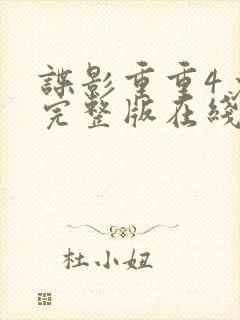 谍影重重4
完整版在线
杜小妞